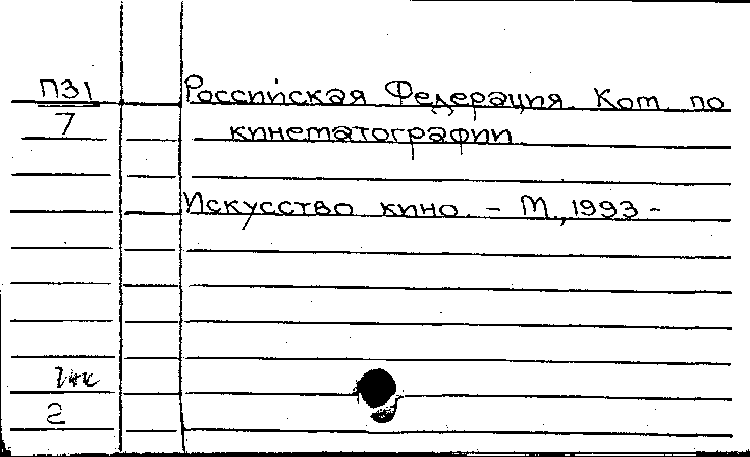 П31 Российская Федерация. Ком. по
7 кинематографии
Искусство кино. - М., 1993 -
2